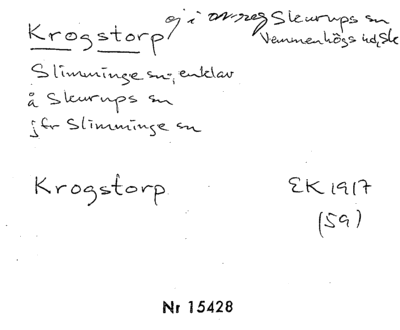 Krogstorp ej i ovreg Skurups sn
Vemmenhögs hd, Sk
Slimminge sn, enklav
å Skurups sn
jfr Slimminge sn
Krogstorp EK 1917
(59)
Nr 15428